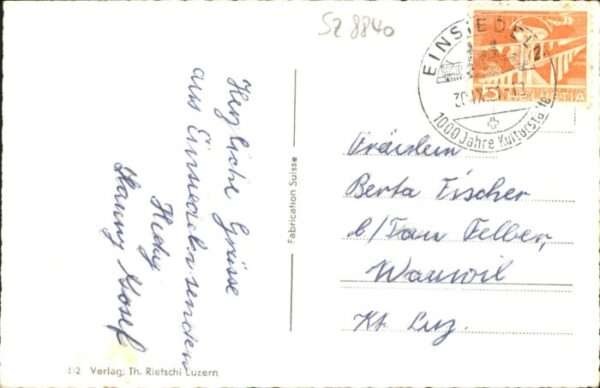 SZ 8840
EINSIEDELN
1000 Jahre Kulturstätte
5 HELVETIA
Herzliche Grüsse
aus Einsiedeln senden
Hedy
Hanny Josef
Fabrication Suisse
Fräulein
Berta Fischer
b/Fam Felber,
Wauwil
Kt. Luz.
Verlag: Th. Rietschi Luzern